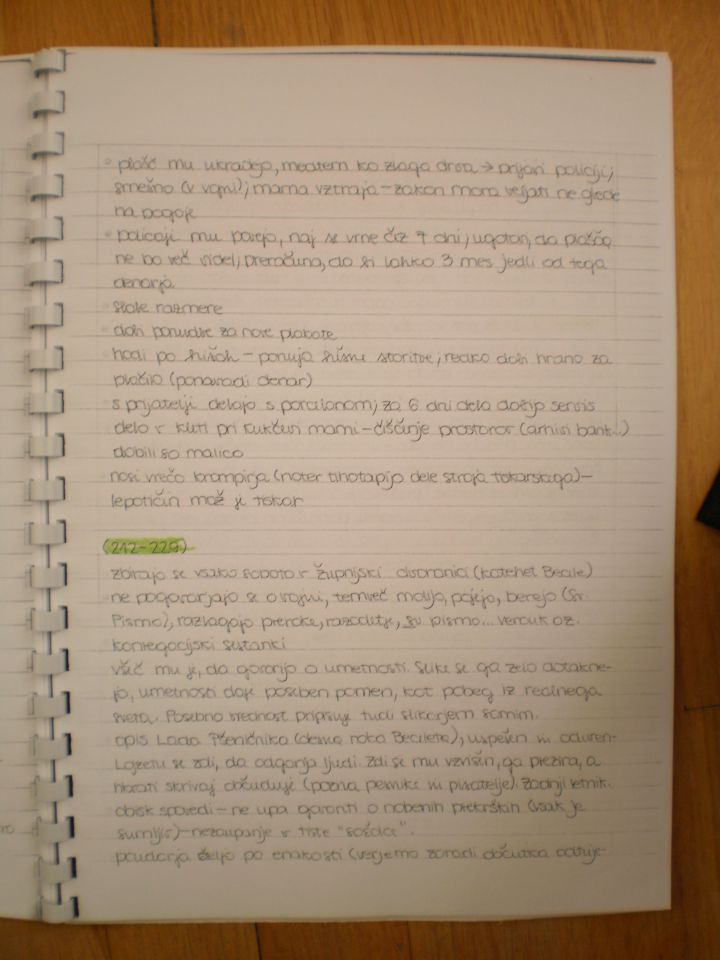 ° plašč mu ukradejo, medtem ko zlaga drva → prijavi policiji;
smešno (v vojni); mama vztraja – zakon mora veljati ne glede
na pogoje
° policaji mu povejo, naj se vrne čez 7 dni; ugotovi, da plašča
ne bo več videl; preračuna, da bi lahko 3 mes jedli od tega
denarja
slabe razmere
dobi ponudbe za nove plakate
hodi po hišah – ponuja hišne storitve; redko dobi hrano za
plačilo (ponavadi denar)
s prijatelji delajo s porcelanom; za 6 dni dela dobijo servis
delo v kleti pri Kukčevi mami – čiščenje prostorov (arhivi bank...)
dobili so malico
nosi vrečo krompirja (noter tihotapijo dele stroja tokarskega) –
lepotičin mož je tokar
(212-229)
zbirajo se vsako soboto v župnijski dvorani (katehet Beale)
ne pogovarjajo se o vojni, temveč molijo, pojejo, berejo (Sv.
Pismo), razlagajo preroke, razodetje, sv. pismo... verouk oz.
kongregacijski sestanki
všeč mu je, da govorijo o umetnosti. Slike se ga zelo dotakne-
jo, umetnosti daje poseben pomen, kot pobeg iz realnega
sveta. Posebno vrednost pripisuje tudi slikarjem samim.
opis Lada Pšeničnika (desna roka Bealeta), uspešen in oduren-
Lojzetu se zdi, da odganja ljudi. Zdi se mu vzvišen, ga prezira, a
hkrati skrivaj občuduje (pozna pesnike in pisatelje). Zadnji letnik.
obisk spovedi – ne upa govoriti o nobenih prekrških (vsak je
sumljiv) – nezaupanje v tiste "sošolce".
poudarja željo po enakosti (verjetno zaradi občutka odtuje-